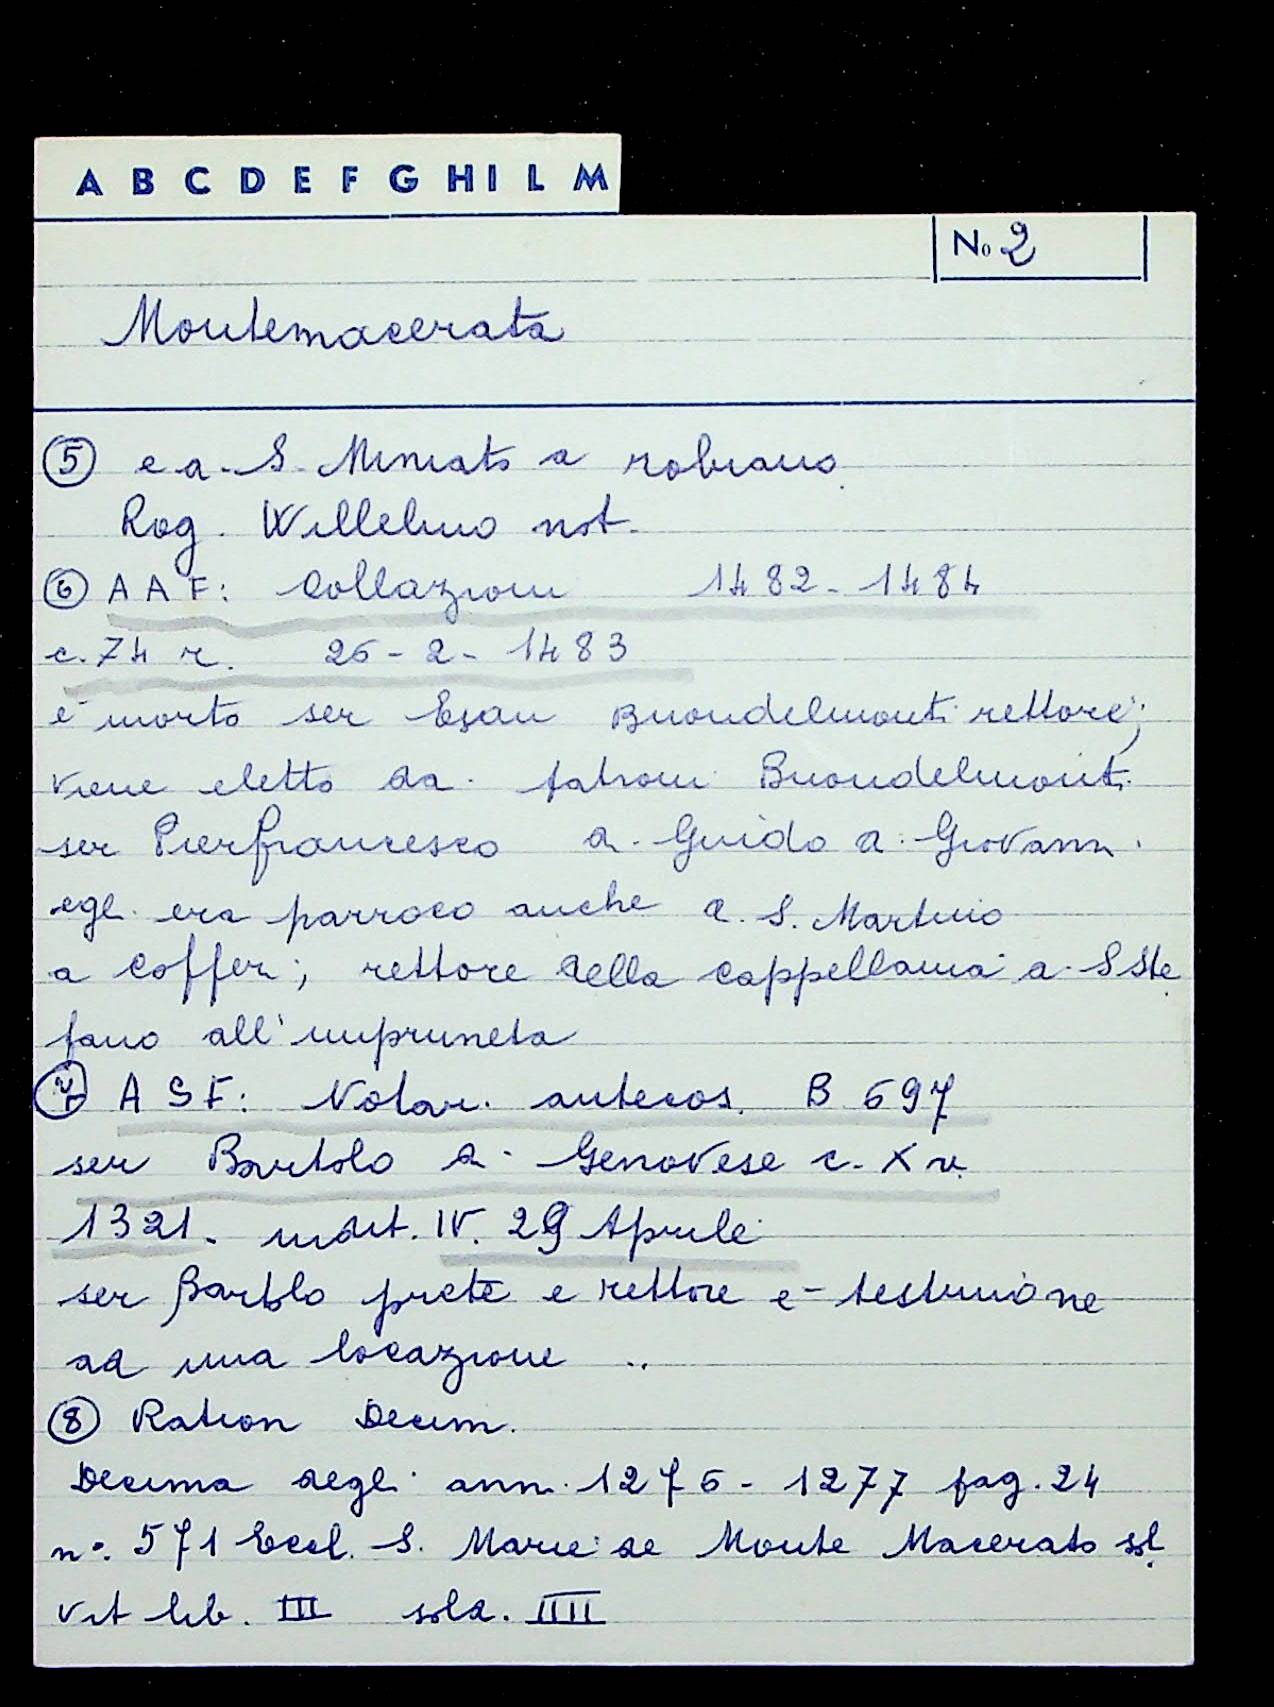 A B C D E F G H I L M
No 2
Montemacerata
⑤ e a. S. Miniato a robiano
Rog. Willelmo not.
⑥ A A F: Collazioni 1482-1484
c. 74 r. 26-2-1483
è morto ser Esau Buondelmonti rettore;
viene eletto da patroni Buondelmonti
ser Pierfrancesco d. Guido d. Giovanni.
egli era parroco anche d. S. Martino
a Cofferi; rettore della cappellania d. S Ste
fano all'impruneta
⑦ A S F: Notar. antecos. B 697
ser Bartolo d. Genovese c. X v.
1321. indit. IV. 29 Aprile
ser Bartolo prete e rettore è testimone
ad una locazione ..
⑧ Ration Decim.
Decima degli anni 1276-1277 pag. 24
n°. 571 Eccl. S. Marie de Monte Macerato sol
vit lib. III sold. IIII